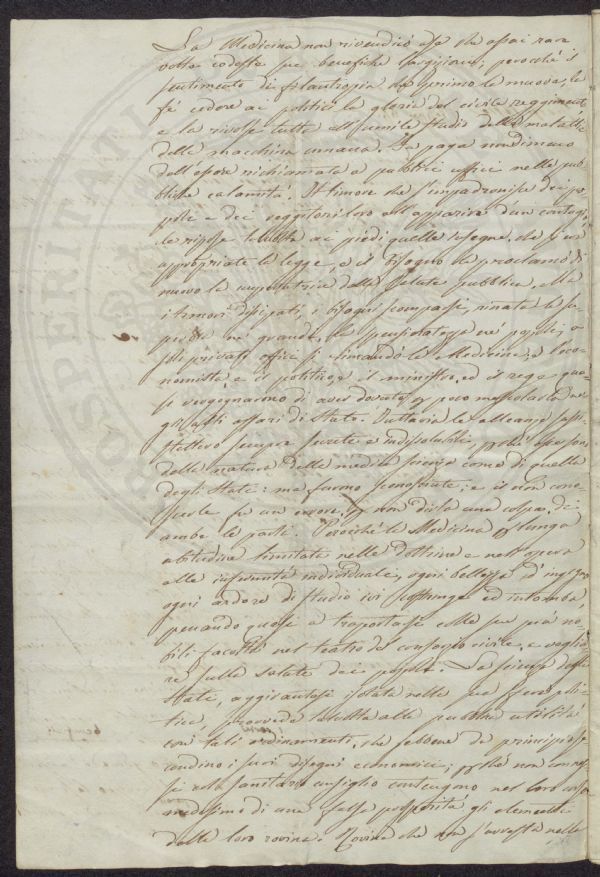 La Medicina non rivendicò essa che assai rare
volte codeste sue benefiche largizioni; perocchè il
sentimento di filantropia che primo la muove, le
fè cedere ai politici la gloria del civile reggimento
e la rivolse tutta all'umile studio delle malattie
della macchina umana. Fu paga nondimeno
dell'essere richiamata a pubblici uffici nelle pub
bliche calamità. Il timore che s'impadronisce dei po
poli e dei reggitori loro all'apparire d'un contagio
le ripose talvolta ai piedi quelle insegne, che s'era
appropriate la legge, e il bisogno la proclamò di
nuovo la imperatrice della Salute pubblica. Ma
i timori dissipati, i bisogni scomparsi, rinata la su
perbia ne' grandi, la spensieratezza ne' popoli, a
soli privati offici si rimandò la Medicina, e l'eco
nomista, e il politico, e il ministro, ed il rege qua
si vergognarono di aver dovuto per poco mescolarla ne
gli alti affari di Stato. Tuttavia le alleanze sussi
stettero sempre secrete e indissolubili, perchè esse sono
dalla natura della medica scienza come di quella
degli Stati: ma furono sconosciute; e il non cono
scerle fu un errore, per non dirla una colpa, di
ambe le parti. Perocchè la Medicina per lunga
abitudine limitata nelle dottrine e nell'opera
alle infermità individuali, ogni bellezza d'ingegno
ogni ardore di studio ivi costringe ed intomba,
penando quasi a trasportarsi colle sue più no
bili facoltà nel teatro del consorzio civile, e veglia
re sulla salute dei popoli. La scienza dello
Stato, aggirantesi isolata nella sua sfera poli
tica, provvede talvolta alla pubblica utilità
con tali ordinamenti, che sebbene da principio se
condino i suoi disegni economici, perchè non connes
si col sanitario consiglio contengono nel loro corso
medesimo di una falsa prosperità gli elementi
della loro rovina. Rovina che non s'arresta nella
PROSPERITATI